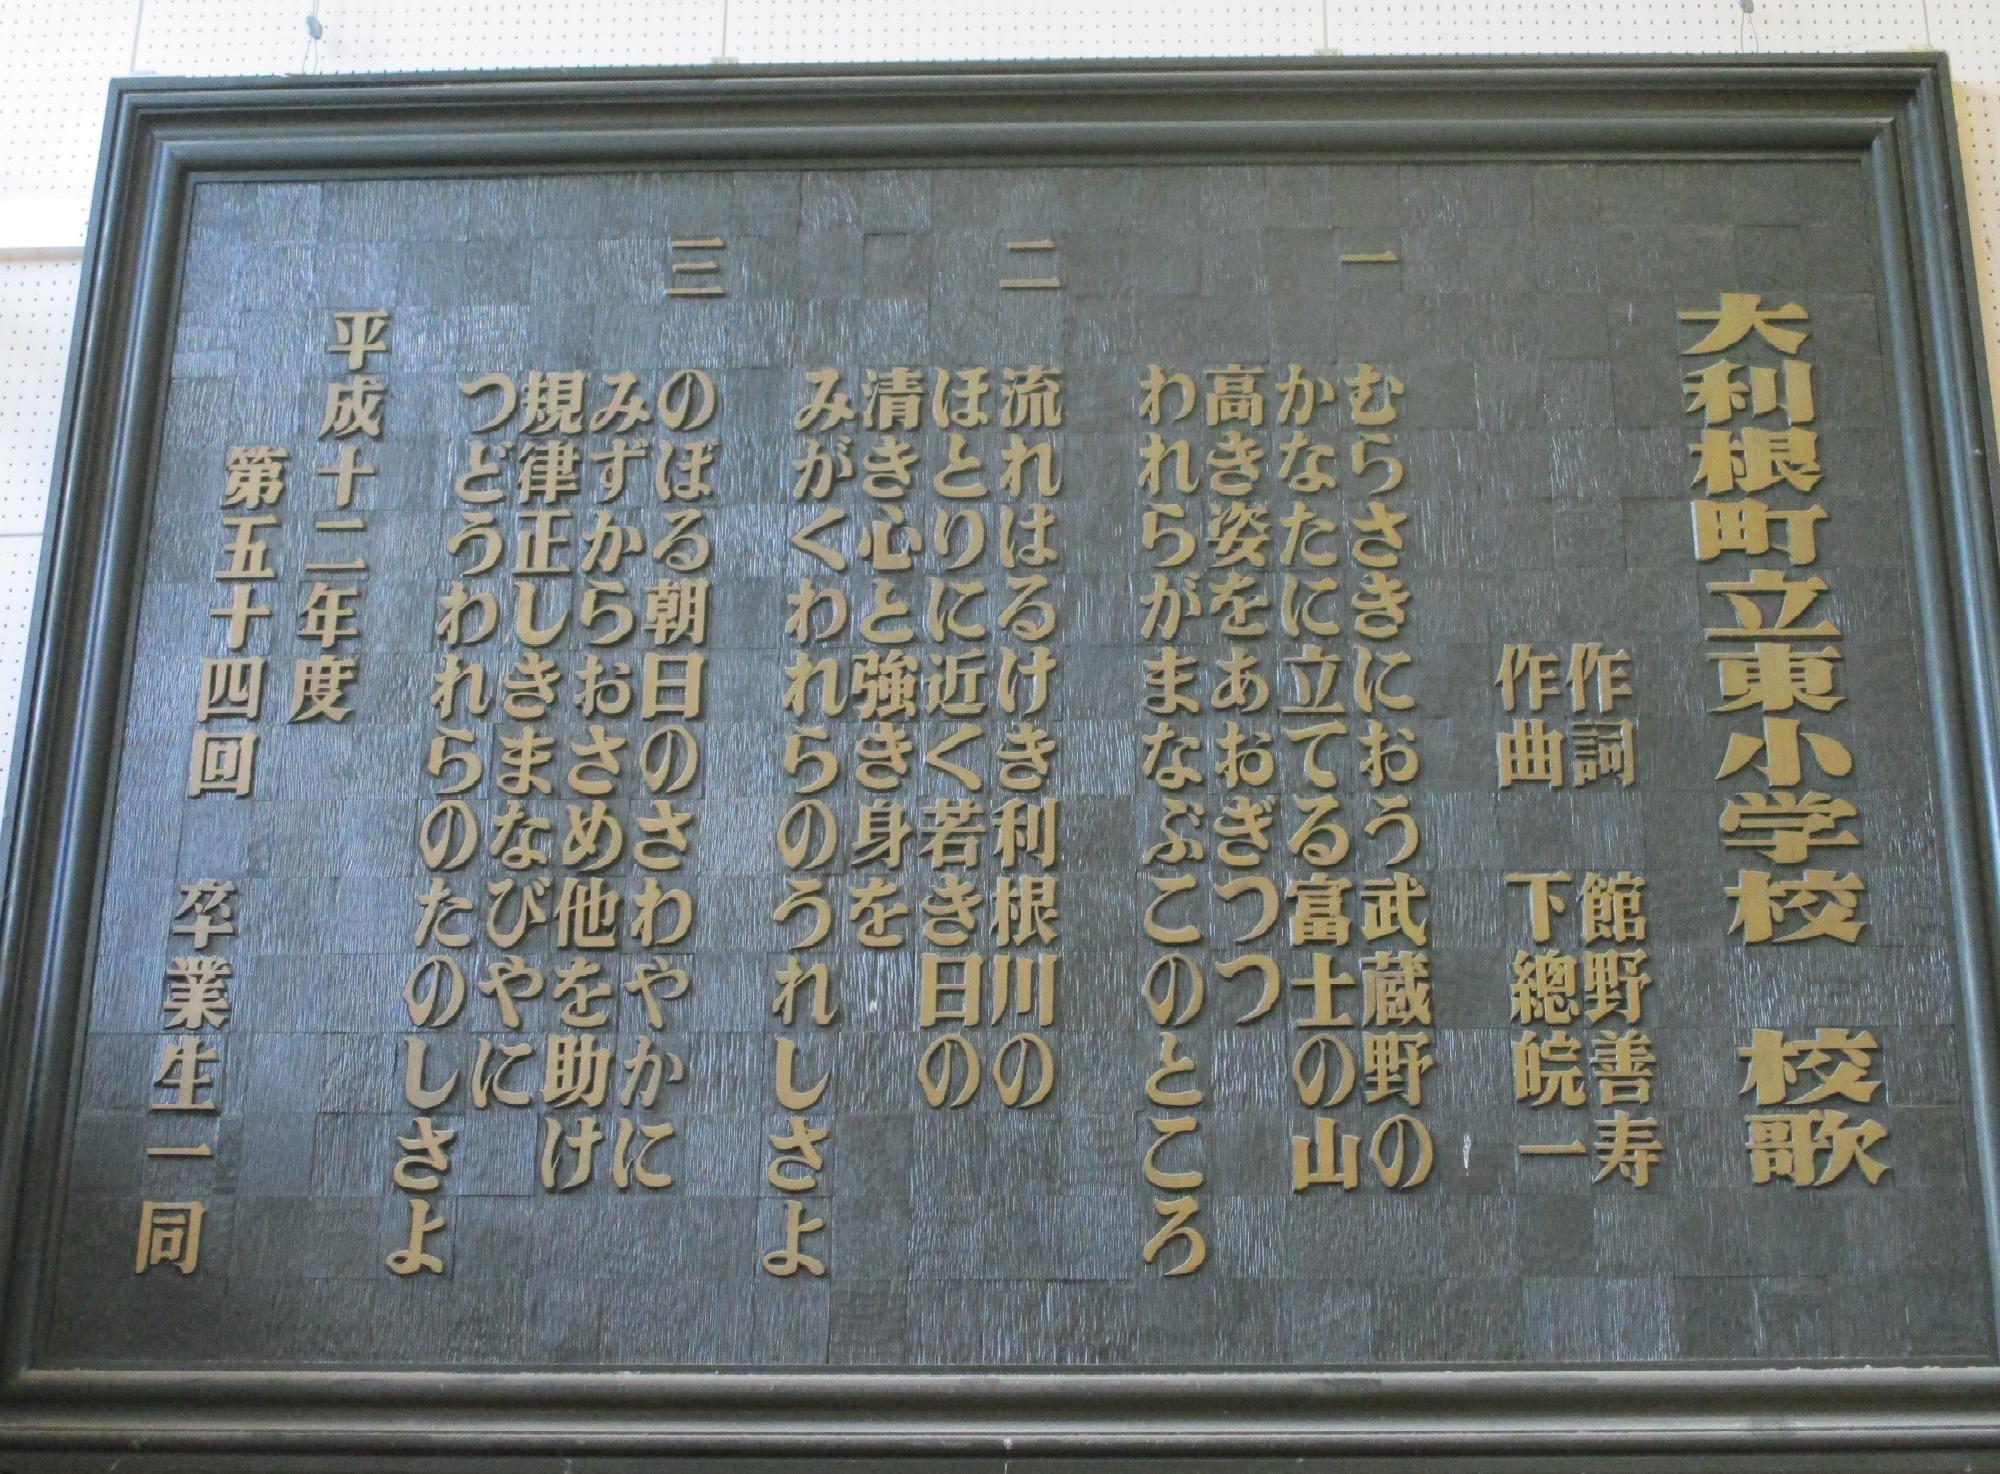 大利根町立東小学校 校歌
作詞 館野善寿
作曲 下總皖一
一
むらさきにおう武蔵野の
かなたに立てる富士の山
高き姿をあおぎつつ
われらがまなぶこのところ
二
流れはるけき利根川の
ほとりに近く若き日の
清き心と強き身を
みがくわれらのうれしさよ
三
のぼる朝日のさわやかに
みずからおさめ他を助け
規律正しきまなびやに
つどうわれらのたのしさよ
平成十二年度
第五十四回 卒業生一同